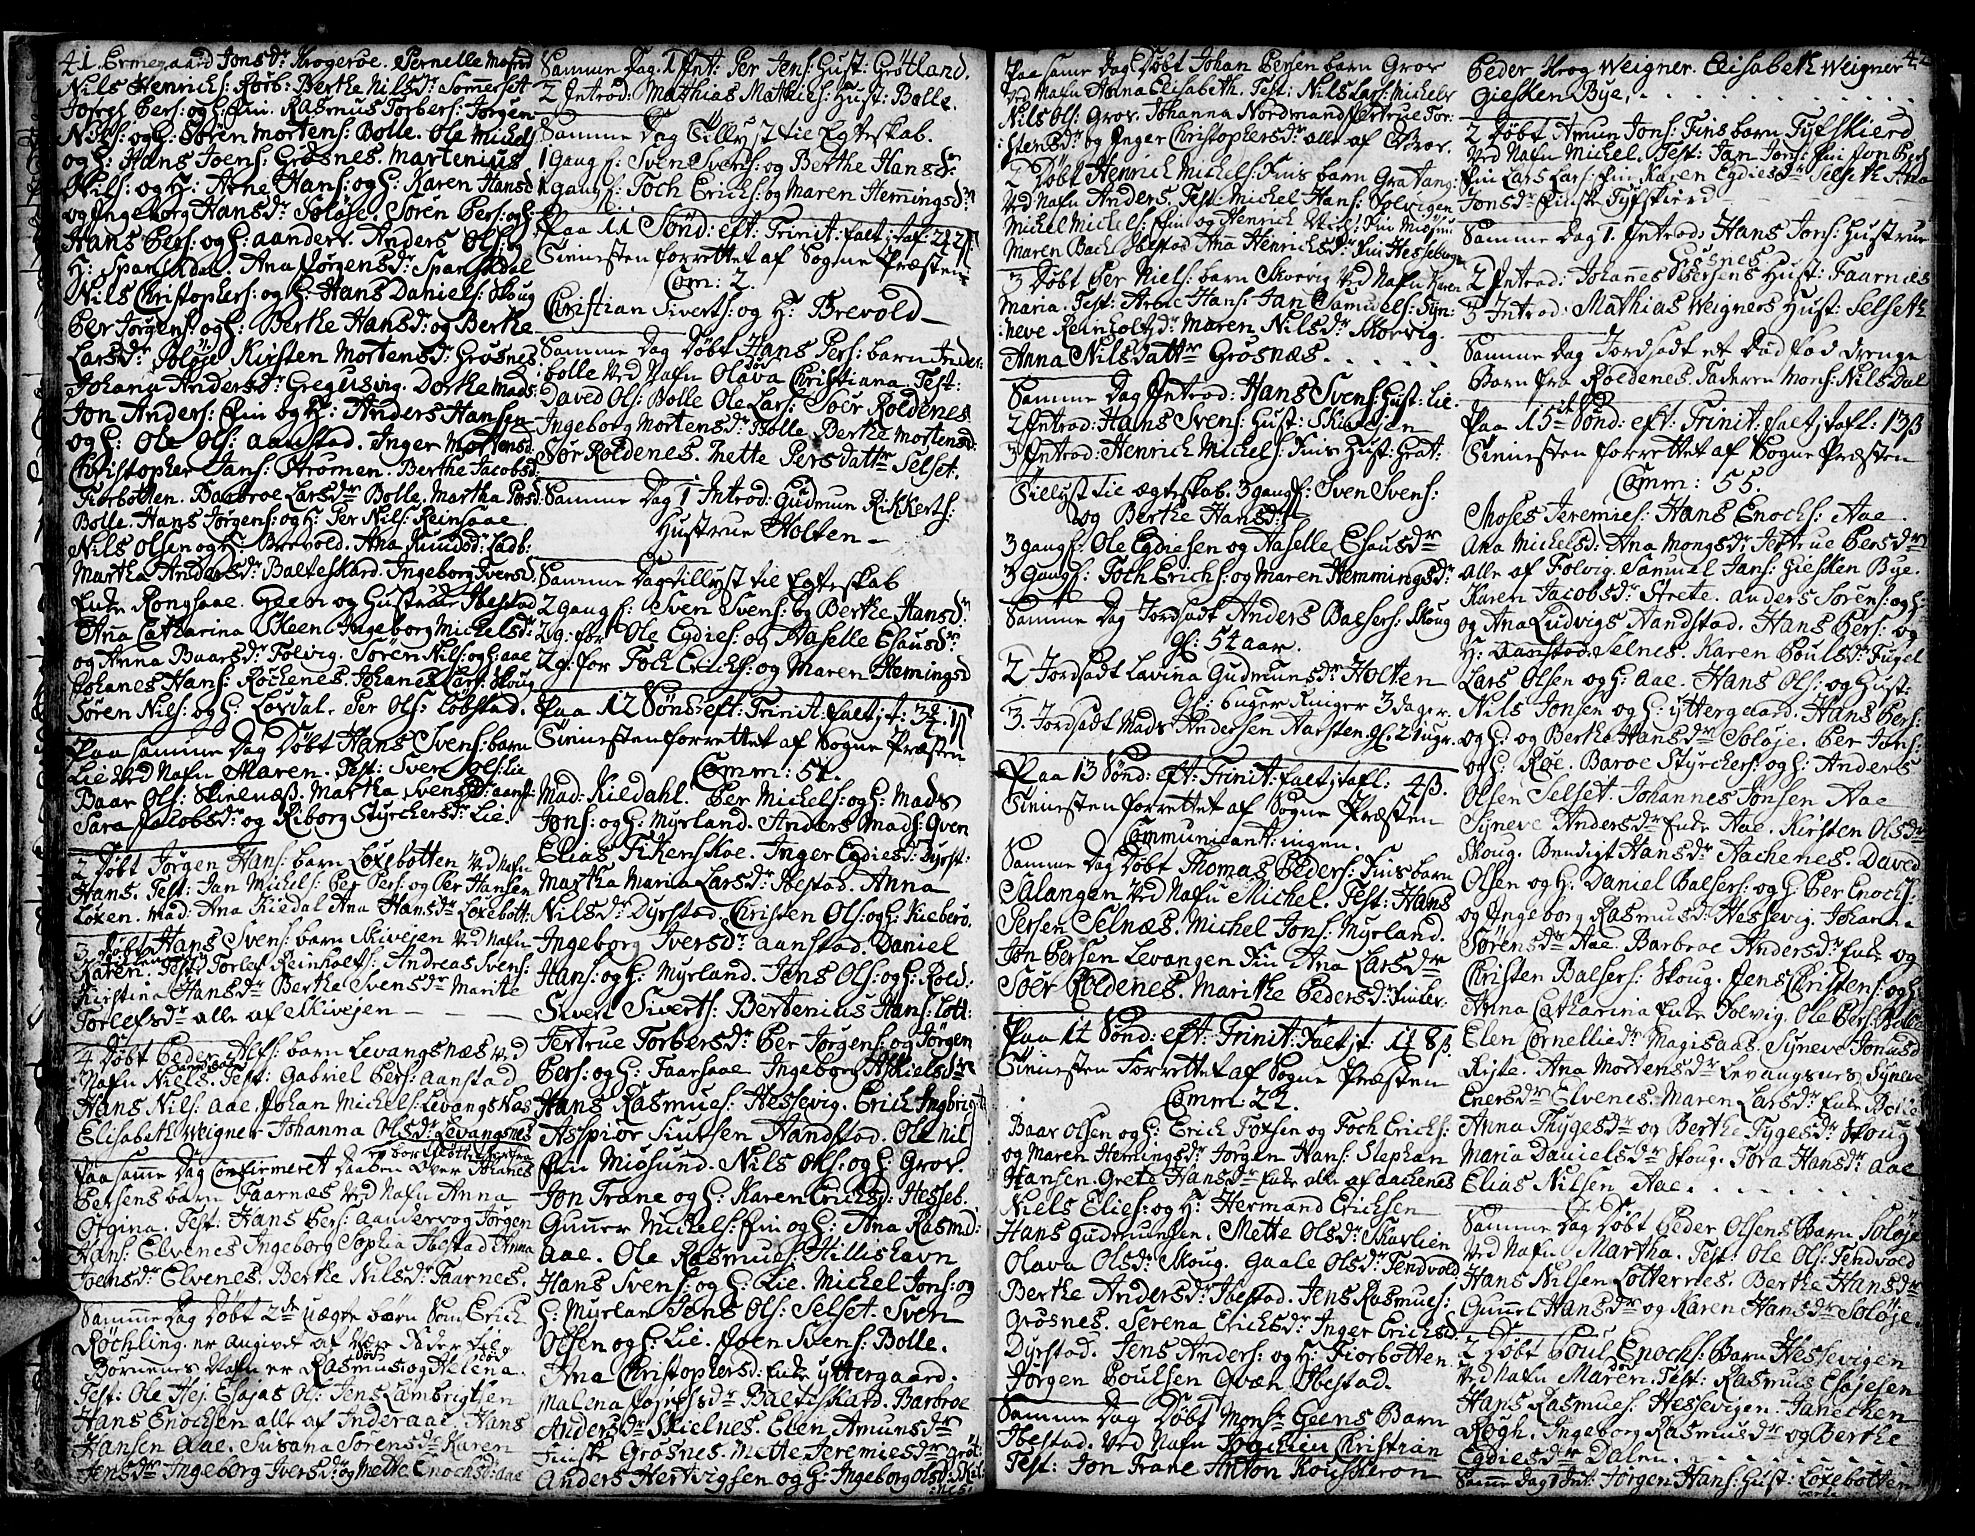 41. Ermegaard Jonsdr Krogerøe. Pernelle
Nils Henrichs: Rørb: Berthe Nilsdr Sommerset
Joseph Pers: og H: fin. Rasmus Torbers: Jørgen
Nils: og H: Søren Mortens: Bolle. Ole Michels
og H: Hans Joens: Grøsnes. Martenius
Nils: og H: Arne Hans: og H: Karen Hansd
og Ingeborg Hansdr Soløje. Søren Pers: og H:
Hans Pers: og H: aanderv. Anders Ols: og
H: Spansdal. Ana Jørgensdr Spansdal
Nils Christophers: og H: Hans Daniels: Skoug
Per Jørgens: og H: Berthe Hansd: og Berthe
Larsdr Soløje Kirsten Mortensdr Grøsnes
Johana Andersdr Gregusvig. Dorthe Mads:
Jon Anders: Fin og H: Anders Hanssen
og H: Ole Ols: Aanstad. Inger Mortensd
Christopher Jans: Strømen. Berthe Jacobsd
Fiorbotten. Barbroe Larsdr Bolle. Martha Persd
Bolle. Hans Jørgens: og H: Per Nils: Reinsaae
Nils Olsen og H: Brevold. Ana Knudsd: Ladb:
Martha Andersdr Balteskard. Ingeborg Iversd.
Enke Rongsaae. Geen og Hustrue Ibestad
Anna Catharina Skeen Ingeborg Michelsdr
og Anna Baarsdr Folvig. Søren Nils: og H: aae
Johanes Hans: Rochenes. Johanes Lars: Skoug
Søren Nils: og H. Løvdal. Per Ols: Løbstad.
Paa samme Dag Døbt Hans Svens: barn
Lie ved Nafn Maren. Test: Sven Ols: Lie
Baar Ols: Skielnæs. Martha Svensdr: aanst:
Sara Jacobsdr og Riborg Styrckersdr Lie.
2 Døbt Jørgen Hans: barn Løxebotten ved Nafn
Hans. Test: Jan Michels: Per Pers: og Per Hansen
Løxen. Mad: Ana Kiedal Ana Hansdr Løxebott:
3 Døbt Hans Svens: barn Skivejen ved Nafn
Karen. Test: Torlef Reinholts: Andreas Svens:
Kirstina Hansdr Berthe Svensdr Marite
Torlefsdr alle af Skivejen
4 Døbt Peder Alfs: barn Levangsnæs ved
Nafn Niels. Test: Gabriel Pers: Aanstad
Hans Nils: Aae. Johan Michels: Levangsnæs
Elisabeth Weigner Johanna Olsdr Levangsnes
Paa same Dag Confirmeret Daaben over Johanes
Persens barn Faarnæs ved Nafn Anna
Test: Hans Pers: Aanderv og Jørgen
Hans: Elvenes Ingeborg Sophia Ibestad Anna
Joensdr Elvenes. Berthe Nilsdr Faarnes.
Samme Dag Døbt 2de uægte børn Som Erich
Røchling er angivet
Børnenes Nafn er Rasmus og Helena.
Test: Ole Hej. Esajas Ols: Jens Lambrigtsen
Hans Enochsen alle af Inderaae. Hans
Hansen Aae. Susana Sørensdr Karen
Jensdr Ingeborg Iversdr og Mette Enochsdr aae
Samme Dag. 1 Int: Per Jens: Hust: Grøtland.
2 Introd: Mathias Mathies: Hust: Bolle.
Samme Dag Tillyst til Egteskab.
1 Gang f: Sven Svens: og Berthe Hansdr
1 gang f: Toch Erichs: og Maren Hemingsdr
Paa 11 Sønd: eft: Trinit:
Tienesten forrettet af Sogne Præsten
Com: 2.
Christian Siverts: og H: Brevold
Samme Dag Døbt Hans Pers: barn Inder:
bolle ved Nafn Olava Christiana. Test:
Daved Ols: Bolle Ole Lars: Soer Roldenes
Ingeborg Mortensdr Bolle. Berthe Mortensd:
Sør Roldenes. Mette Persdattr Selset.
Samme Dag 1 Introd: Gudmun Rikkerts:
Hustrue Holten
Samme Dag tillyst til Egteskab
2 gang f: Sven Svens: og Berthe Hansdr
2 g: for Ole Egdies: og Haselle Esausdr
2 g: for Toch Erichs: og Maren Hemingsd
Paa 12 Sønd: eft: Trinit:
Tienesten forrettet af Sogne Præsten
Comm: 51.
Mad: Kiedahl. Per Michels: og H: Mads
Jons: og H: Myrland. Anders Mads: Qven
Elias Fikenskoe. Inger Egdiesd: Dyrst:
Martha Maria Larsdr Ibestad. Anna
Nilsdr Dyrstad. Christen Ols: og H: Kieberø.
Ingeborg Iversdr Aanstad. Daniel
Hans: og H: Myrland. Jens Ols: og H: Rold:
Siven Siverts: Bertenius Hans: Lott:
Jertrue Torbersdr Per Jørgens: og Jørgen
Pers: og H: Faarsaae Ingeborg
Hans Rasmues: Hessevig. Erich Ingbrigt
Aspiør Knutsen Aandstad. Ole Nils
Fin Miøsund. Nils Ols: og H: Grov.
Jon Trane og H: Karen Ericksd: Hesseb.
Gunner Michels: Fin og H: Ana Rasmd:
aae. Ole Rasmues: Hillishavn
Hans Svens: og H: Lie. Michel Jons: og
H: Myrlan Jens Ols: Selset. Sven
Olsen og H: Lie. Joen Svens: Bolle.
Ana Christophersd: Enke yttergaard.
Malena Josefsdr Baltiskard. Barbroe
Andersdr Skielnes. Elen Amunsdr
Finsk Grøsnes. Mette Jeremiesdr Grøt:
Anders Hertvigsen og H: Ingeborg Olsd:
Paa same Dag Døbt Johan Persen barn Grov
ved Nafn Anna Elisabeth. Test: Nils Lars: Michels
Nils Ols: Grov. Johanna Nordmand Jertrue Tor:
:stensdr og Inger Christophersdr alle af Grov.
2 Døbt Henrich Michels: Fins barn Gratang:
ved Nafn Anders. Test Michel Hans: Folvigen
Michel Michels: Fin og Henrich Fin Miøsun:
Maren Bach Ibestad Ana Henrichsdr Fin Hessebogen
3 Døbt Per Niels: barn Skorvig ved Nafn Karen
Maria. Test: Arne Hans: Jan Samuels: Syn:
:neve Reinholtsdr Maren Nilsdr Skorvig.
Anna Nilsdattr Grøsnæs.
Samme Dag Introd: Hans Svens: Hust: Lie.
2 Introd: Hans Svens: Hust: Skivejen
3 Introd: Henrich Michels: Fins Hust: Grat:
Tillyst til ægteskab. 3 gang f: Sven Svens:
og Berthe Hansdr
3 gang f: Ole Egdiesen og Haselle Esausdr
3 Gang f: Toch Erichs: og Maren Hemmingsdr
Samme Dag Jordsadt Anders Balsers: Skoug
gl: 54 aar.
2 Jordsadt Lavina Gudmunsdr Holten
Gl: 6 uger Ringer 3 dager.
3. Jordsadt Mads Andersen Aarsten gl. 21 ugr.
Paa 13 Sønd: eft: Trinit: falt; tafl: 4ß.
Tienesten forrettet af Sogne Præsten
Communicant: ingen.
Samme Dag Døbt Thomas Peders: Fins barn
Salangen ved Nafn Michel. Test: Hans
Persen Selnæs. Michel Jons: Myrland.
Jon Persen Levangen Fin Ana Larsdr
Soer Roldenes. Marithe Pedersdr
Paa 14 Sønd: eft: Trinit: falt; t: 1 8ß.
Tienesten Forrettet af Sogne Præsten
Comm: 22.
Baar Olsen og H: Erich Foxsen og Toch Erichs:
og Maren Hemingsdr Jørgen Hans: Stephan
Hansen. Grete Hansdr Enke alle af Aachenes
Niels Elies: og H: Hermand Ericksen
Hans Gudmunsen. Mette Olsdr Skavlien
Olava Olsdr Skoug. Gaale Olsdr Tendvold
Berthe Andersdr Ibestad. Jens Rasmues:
Grøsnes. Serena Ericksdr Inger Ericksd
Dyrstad. Jens Anders: og H: Fiorbotten.
Jørgen Poulsen Qvæn Ibestad.
Samme Dag Døbt Monsr Geens Barn
Ibestad. Ved Nafn Joachim Christian
Test: Jon Trane Anton
Peder Krog Weigner. Elisabeth Weigner 42
Giesken Bye.
2 Døbt Amun Jons: Fins barn Tyfskierd
Ved Nafn Michel. Test: Jan Jons: fin Jon Pers
Fin Lars Lars: fin Karen Egdiesdr Selseth Ana
Jonsdr Finsk Tyfskierd
Samme Dag 1. Introd: Hans Jons: Hustrue
Grøsnes
2 Introd: Johannes Persens Hust: Faarnæs
3 Introd: Mathias Weigners Hust: Selseth
Samme Dag Jordsadt et Død fød drenge
Barn fra Roldenes. Faderen Mons: Nils Dal
Paa 15de Sønd: eft: Trinit: falt; tafl: 13ß
Tienesten forrettet af Sogne Præsten
Comm: 55.
Moses Jeremies: Hans Enochs: Aae.
Ana Michelsd: Ana Mongsdr Jertrue Persdr
alle af Folvig. Samuel Jans: Giesken Bye.
Karen Jacobsdr Strete. Anders Sørens: og H:
og Ana Ludvigs Aandstad. Hans Pers: og
H: Aanstad. Selnes. Karen Poulsdr Fugel
Lars Olsen og H: Aae. Hans Ols: og Hust:
Nils Jonsen og H: yttergaard. Hans Pers:
og H: og Berthe Hansdr Soløje. Per Jons:
og H: Røe. Baroe Styrckers: og H: Anders
Olsen Selset. Johannes Jonsen Aae
Syneve Andersdr Enke Aae. Kirsten Olsdr
Skoug. Bendigt Hansdr Aachenes. David
Olsen og H: Daniel Balsers: og H: Per Enochs:
og Ingeborg Rasmusdr Hessevig. Johana
Sørensdr Aae. Barbroe Andersdr Enke og
Christen Balsers: Skoug. Jens Christens: og H:
Anna Catharina Enke Folvig. Ole Pers: Bolle
Elen Cornelliedr Magisaas. Syneve Jonasd
Rijte. Ana Mortensdr Levangsnes Syneve
Enersdr Elvenes. Maren Larsdr Enke Bolle
Anna Thygesdr og Berthe Tygesdr Skoug
Maria Danielsdr Skoug. Tora Hansdr Aae
Elias Nilsen Aae.
Samme Dag Døbt Peder Olsens Barn Soløje
Ved Nafn Martha. Test: Ole Ols: Tendvold
Hans Nilsen Lotternes. Berthe Hansdr
Gunnel Hansdr og Karen Hansdr Soløje.
2 Døbt Poul Enochs: Barn Hessevigen
Ved Nafn Maren. Test: Rasmus Esajesen
Hans Rasmues: Hessevigen. Janeken
Rogh. Ingeborg Rasmusdr og Berthe
Egdiesdr Dalen.
Same Dag 1 Int: Jørgen Hans: Hust: Løxebotten